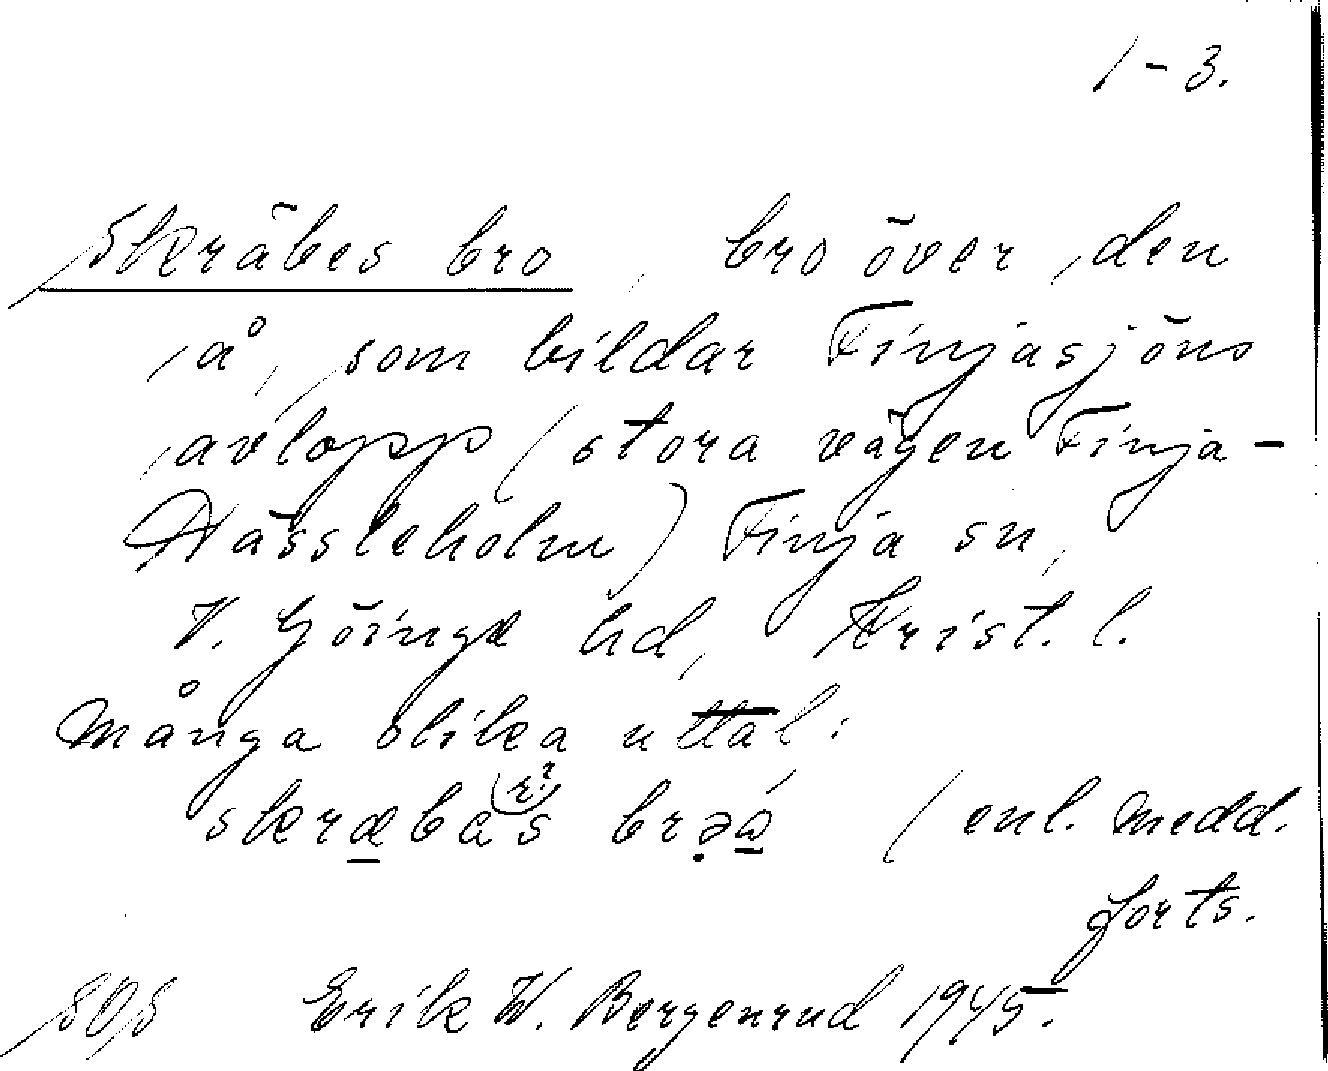 1-3.
Skräbes bro, bro över den
å, som bildar Finjasjöns
avlopp (stora vägen Finja-
Hässleholm) Finja sn,
V. Göinge hd, Krist. l.
Många olika uttal:
skræbas (r?) brəá (enl. medd.
forts.
Erik W. Bergenrud 1945.